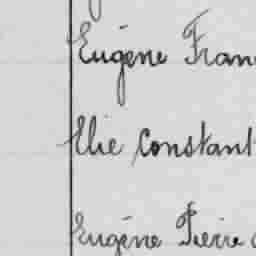 Eugène Fran
Elie Constant
Eugène Pierre